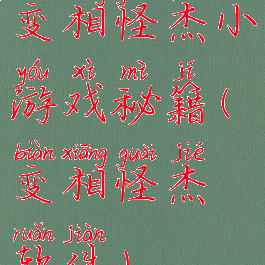 变相怪杰小
yóu xì mì jí
游戏秘籍(
biàn xiāng guài jié
变相怪杰
ruǎn jiàn
软件)